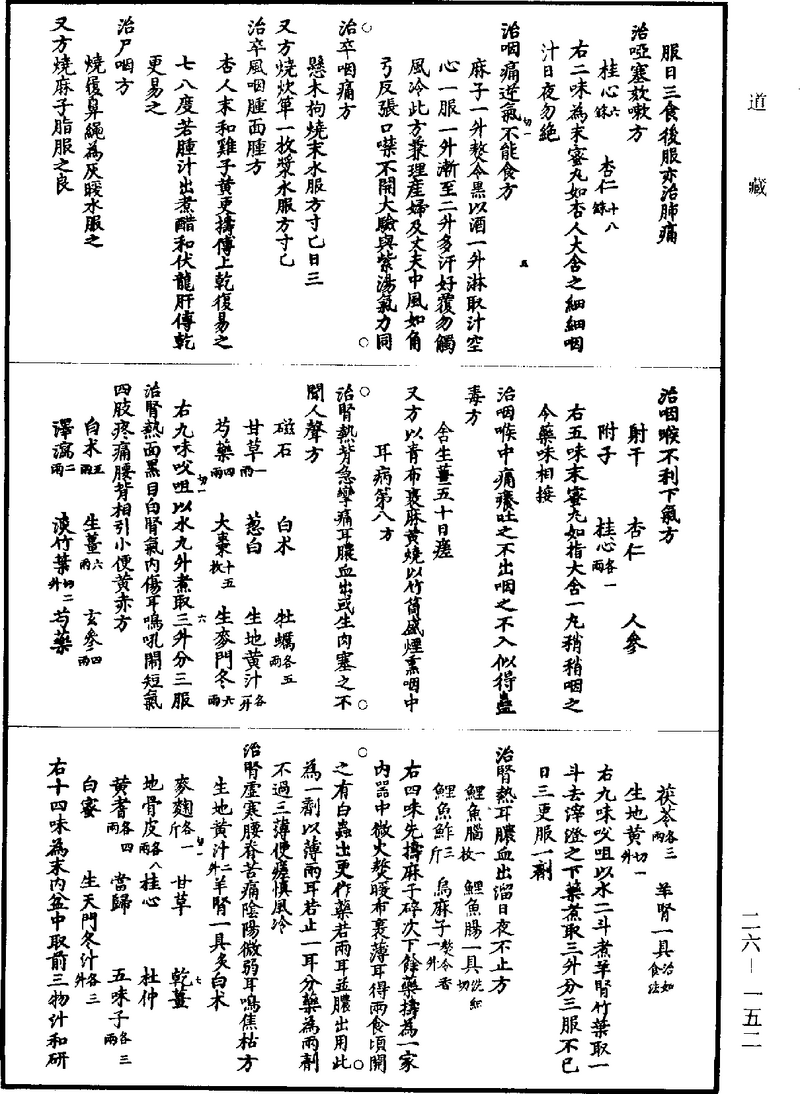 道藏
服日三食後服亦治肺痛
治啞塞欬嗽方
桂心六銖 杏仁十八銖
右二味為末蜜丸如杏人大含之細細咽
汁日夜勿絕
治咽痛逆氣不能食方
麻子一升熬令黑以酒一升淋取汁空
心一服一升漸至二升多汗好覆勿觸
風冷此方兼理產婦及丈夫中風如角
弓反張口噤不開大驗與紫湯氣力同
治卒咽痛方
懸木枸燒末水服方寸匕日三
又方燒炊箄一枚漿水服方寸匕
治卒風咽腫面腫方
杏人末和雞子黃更擣傅上乾復易之
七八度若腫汁出煮醋和伏龍肝傅乾
更易之
治尸咽方
燒履鼻繩為灰暖水服之
又方燒麻子脂服之良
治咽喉不利下氣方
射干 杏仁 人參
附子 桂心各一兩
右五味末蜜丸如指大含一丸稍稍咽之
令藥味相接
治咽喉中痛癢吐之不出咽之不入似得蠱
毒方
含生薑五十日瘥
又方以青布裹麻黃燒以竹筒盛煙熏咽中
耳病第八方
治腎熱背急攣痛耳膿血出或生肉塞之不
聞人聲方
磁石 白朮 牡蠣各五兩
甘草一兩 蔥白 生地黃汁各一升
芍藥四兩 大棗十五枚 生麥門冬六兩
右九味㕮咀以水九升煮取三升分三服
治腎熱面黑目白腎氣內傷耳鳴吼鬧短氣
四肢疼痛腰背相引小便黃赤方
白朮五兩 生薑六兩 玄參四兩
澤瀉二兩 淡竹葉切二升 芍藥
茯苓各三兩 羊腎一具治如食法
生地黃切一升
右九味㕮咀以水二斗煮羊腎竹葉取一
斗去滓澄之下藥煮取三升分三服不已
日三更服一劑
治腎熱耳膿血出溜日夜不止方
鯉魚腦一枚 鯉魚腸一具洗細切
鯉魚鮓三斤 烏麻子熬令香一升
右四味先擣麻子碎次下餘藥擣為一家
內器中微火熬暖布裹薄耳得兩食頃開
之有白蟲出更作藥若兩耳並膿出用此
為一劑以薄兩耳若止一耳分藥為兩劑
不過三薄便瘥慎風冷
治腎虛寒腰脊苦痛陰陽微弱耳鳴焦枯方
生地黃汁二升 羊腎一具炙 白朮
麥麴各一斤 甘草 乾薑
地骨皮各八兩 桂心 杜仲
黃耆各四兩 當歸 五味子各三兩
白蜜 生天門冬汁各三升
右十四味為末內盆中取前三物汁和研
二六—一五二